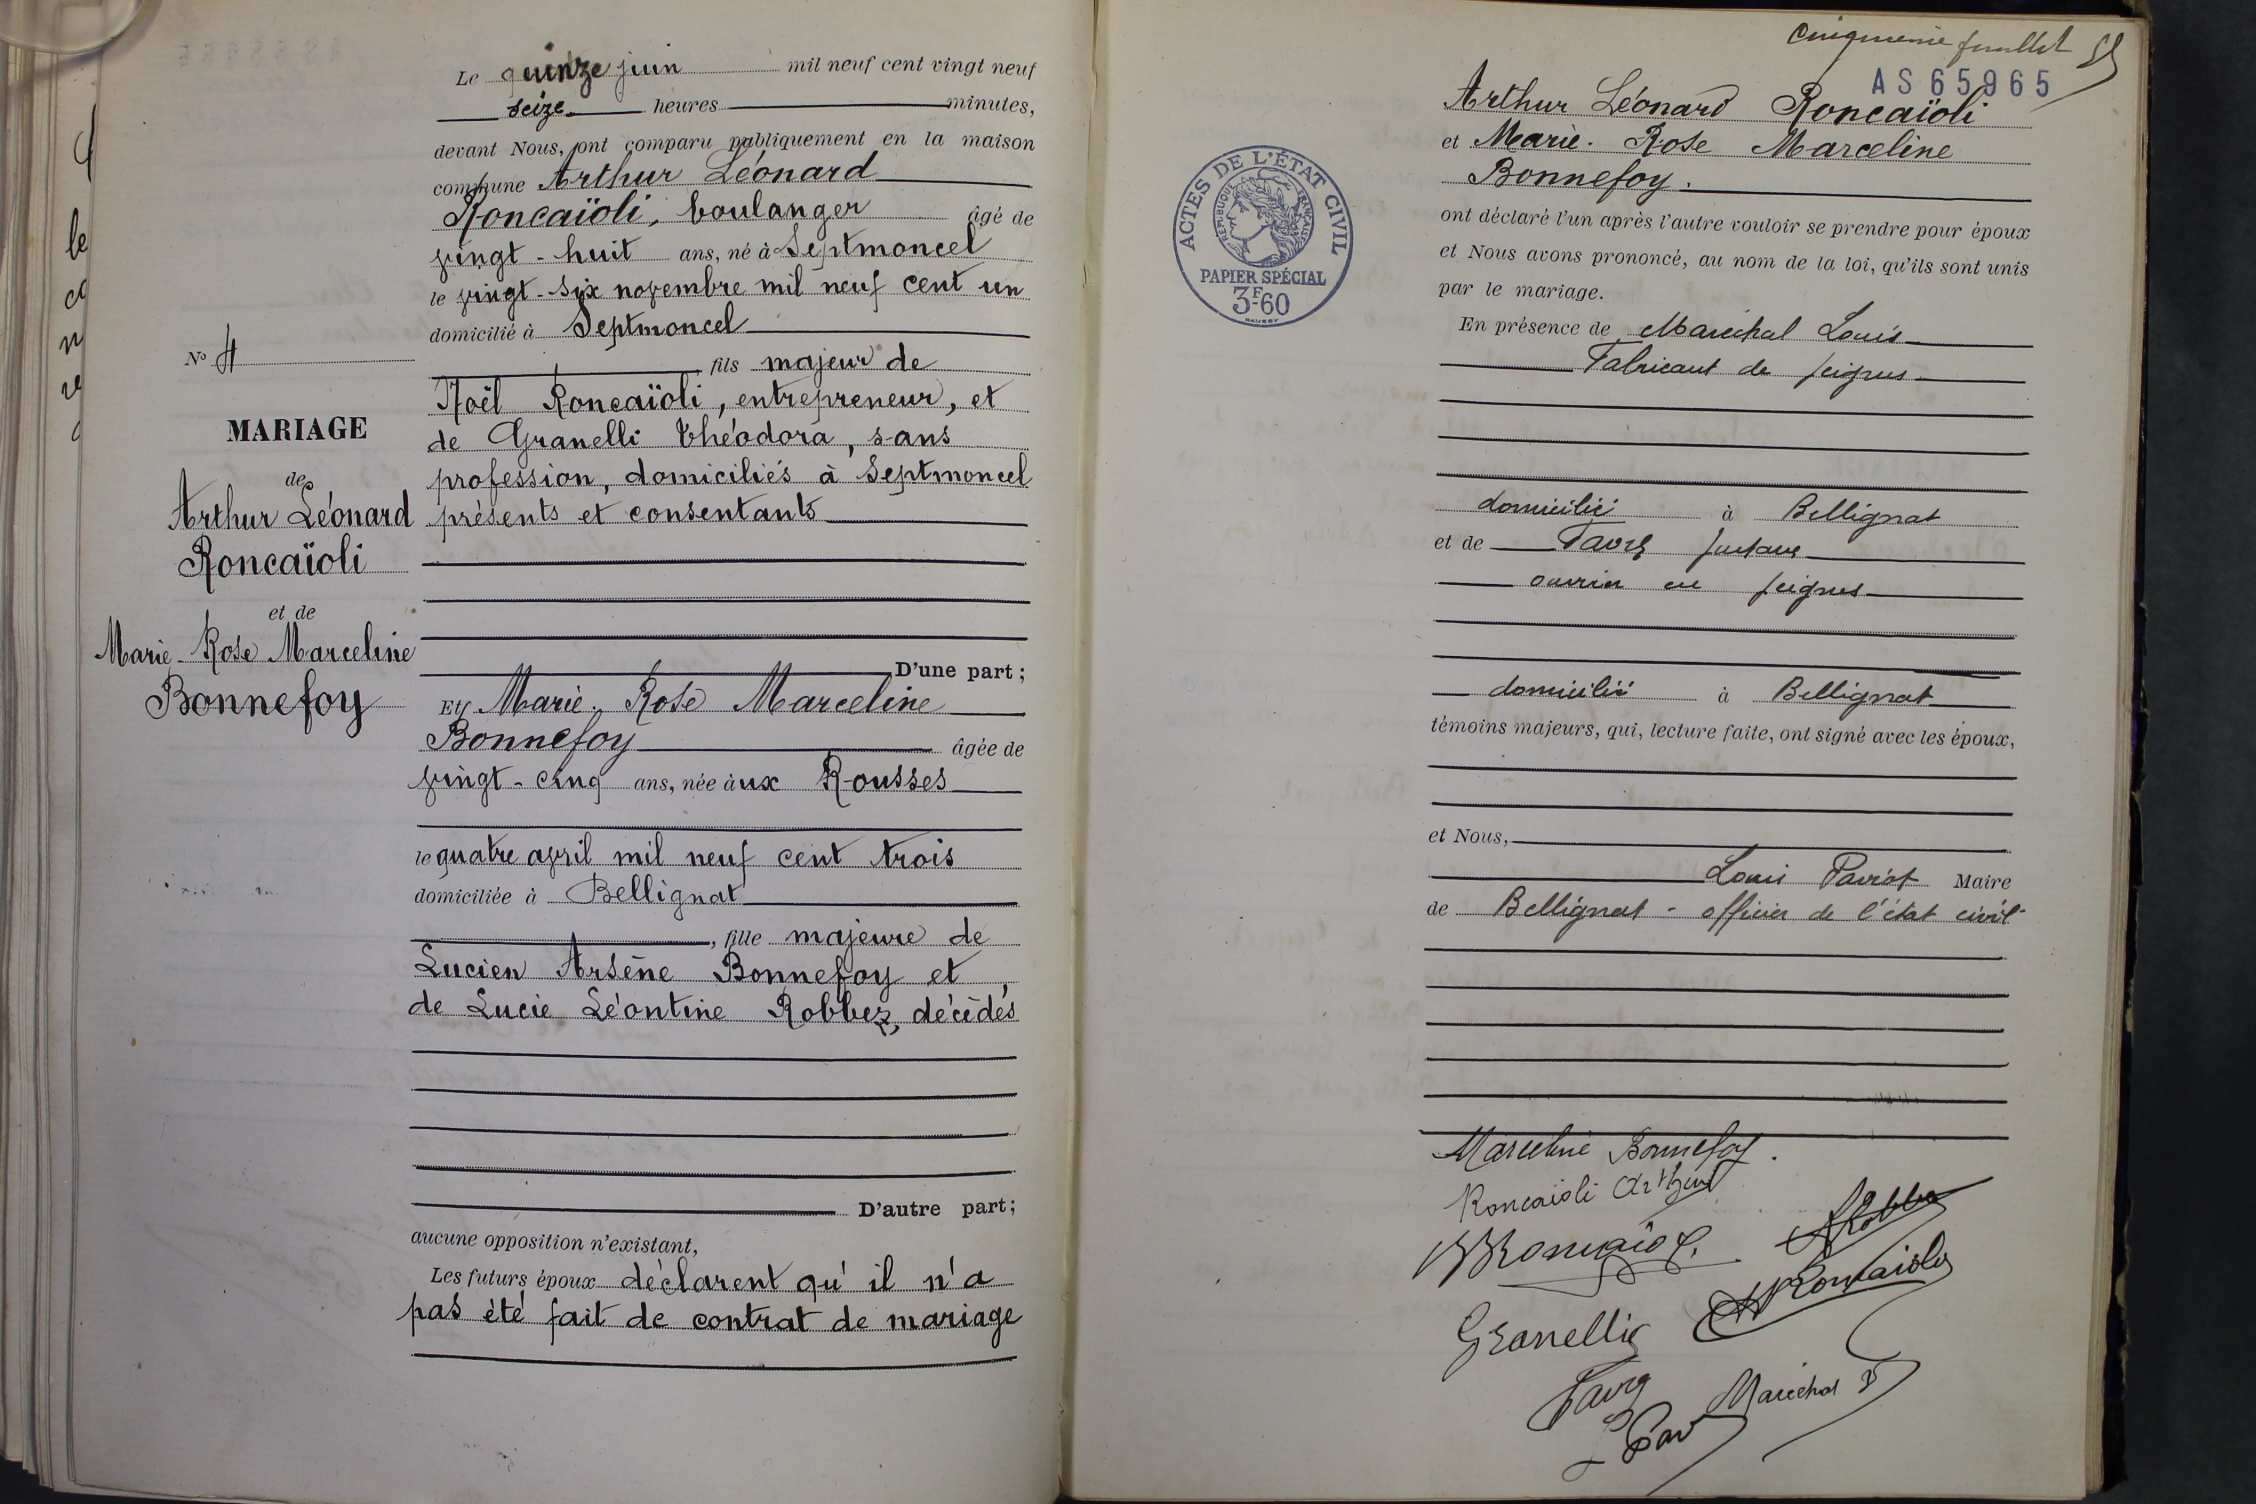 Le quinze juin mil neuf cent vingt neuf
seize heures minutes,
devant Nous, ont comparu publiquement en la maison
commune Arthur Léonard
Roncaïoli, boulanger âgé de
vingt-huit ans, né à Septmoncel
le vingt-six novembre mil neuf cent un
domicilié à Septmoncel
, fils majeur de
Noël Roncaïoli, entrepreneur, et
de Granelli Théodora, sans
profession, domiciliés à Septmoncel
présents et consentants
D'une part;
Et Marie-Rose Marceline
Bonnefoy âgée de
vingt-cinq ans, née àux Rousses
le quatre avril mil neuf cent trois
domiciliée à Bellignat
, fille majeure de
Lucien Arsène Bonnefoy et
de Lucie Léontine Robbez, décédés
D'autre part;
aucune opposition n'existant,
Les futurs époux déclarent qu'il n'a
pas été fait de contrat de mariage
No 4
MARIAGE
de
Arthur Léonard
Roncaïoli
et de
Marie-Rose Marceline
Bonnefoy
Cinquième feuillet
AS65965
Arthur Léonard Roncaïoli
et Marie-Rose Marceline
Bonnefoy.
ont déclaré l'un après l'autre vouloir se prendre pour époux
et Nous avons prononcé, au nom de la loi, qu'ils sont unis
par le mariage.
En présence de Maréchal Louis
Fabricant de peignes
domicilié à Bellignat
et de Favre Gustave
ouvrier en peignes
domicilié à Bellignat
témoins majeurs, qui, lecture faite, ont signé avec les époux,
et Nous,
Louis Maire
de Bellignat - officier de l'état civil-
ACTES DE L'ÉTAT CIVIL
RÉPUBLIQUE FRANÇAISE
PAPIER SPÉCIAL
3F-60
Marceline Bonnefoy.
Roncaioli Arthur
Robbez
Roncaioli
Granelli
Favre
Maréchal